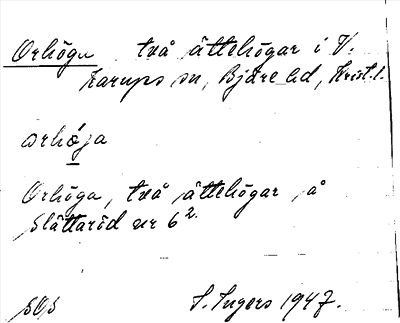 Orhöga två ättehögar i V.
Karups sn, Bjäre hd, Krist. l.
orhöja
Orhöga, två ättehögar på
Slättaröd nr 6².
SOS I. Ingers 1947.